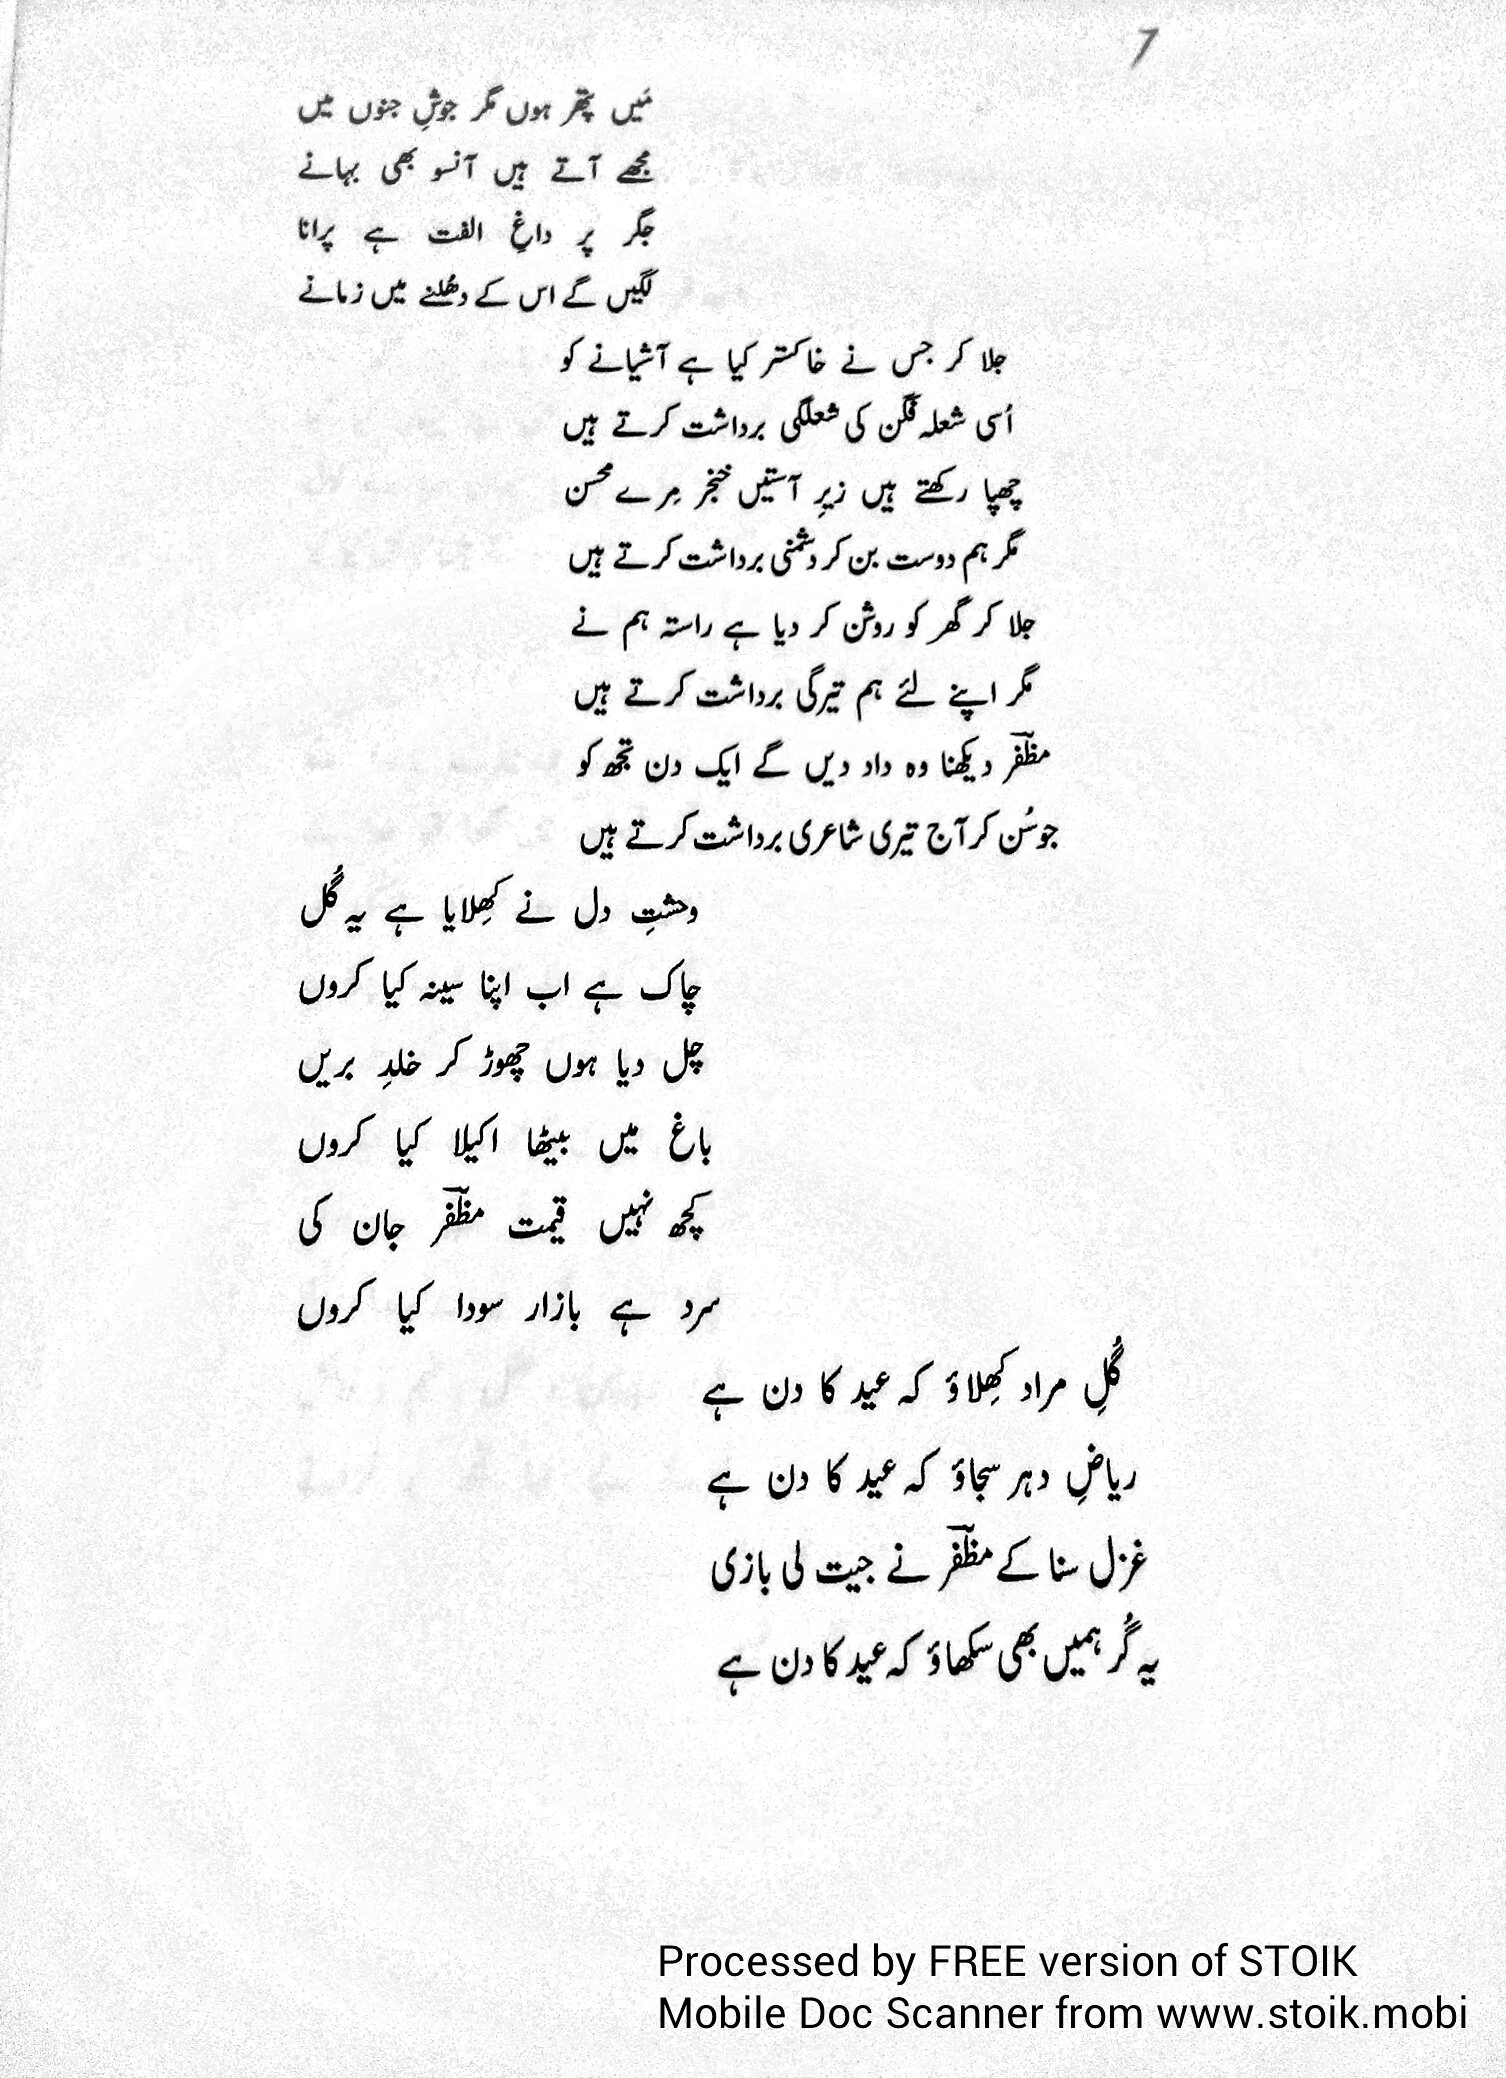 7
مَیں پتھر ہوں مگر جوشِ جنوں میں
مجھے آتے ہیں آنسو بھی بہانے
جگر پر داغِ الفت ہے پرانا
لگیں گے اس کے دھُلنے میں زمانے
جلا کر جس نے خاکستر کیا ہے آشیانے کو
اُسی شعلہ فگن کی شعلگی برداشت کرتے ہیں
چھپا رکھتے ہیں زیرِ آستیں خنجر مِرے محسن
مگر ہم دوست بن کر دشمنی برداشت کرتے ہیں
جلا کر گھر کو روشن کر دیا ہے راستہ ہم نے
مگر اپنے لئے ہم تیرگی برداشت کرتے ہیں
مظفّر دیکھنا وہ داد دیں گے ایک دن تجھ کو
جو سُن کر آج تیری شاعری برداشت کرتے ہیں
وحشتِ دل نے کھِلایا ہے یہ گُل
چاک ہے اب اپنا سینہ کیا کروں
چل دیا ہوں چھوڑ کر خلدِ بریں
باغ میں بیٹھا اکیلا کیا کروں
کچھ نہیں قیمت مظفّر جان کی
سرد ہے بازار سودا کیا کروں
گُلِ مراد کھِلاؤ کہ عید کا دن ہے
ریاضِ دہر سجاؤ کہ عید کا دن ہے
غزل سنا کے مظفّر نے جیت لی بازی
یہ گُر ہمیں بھی سکھاؤ کہ عید کا دن ہے
Processed by FREE version of STOIK
Mobile Doc Scanner from www.stoik.mobi